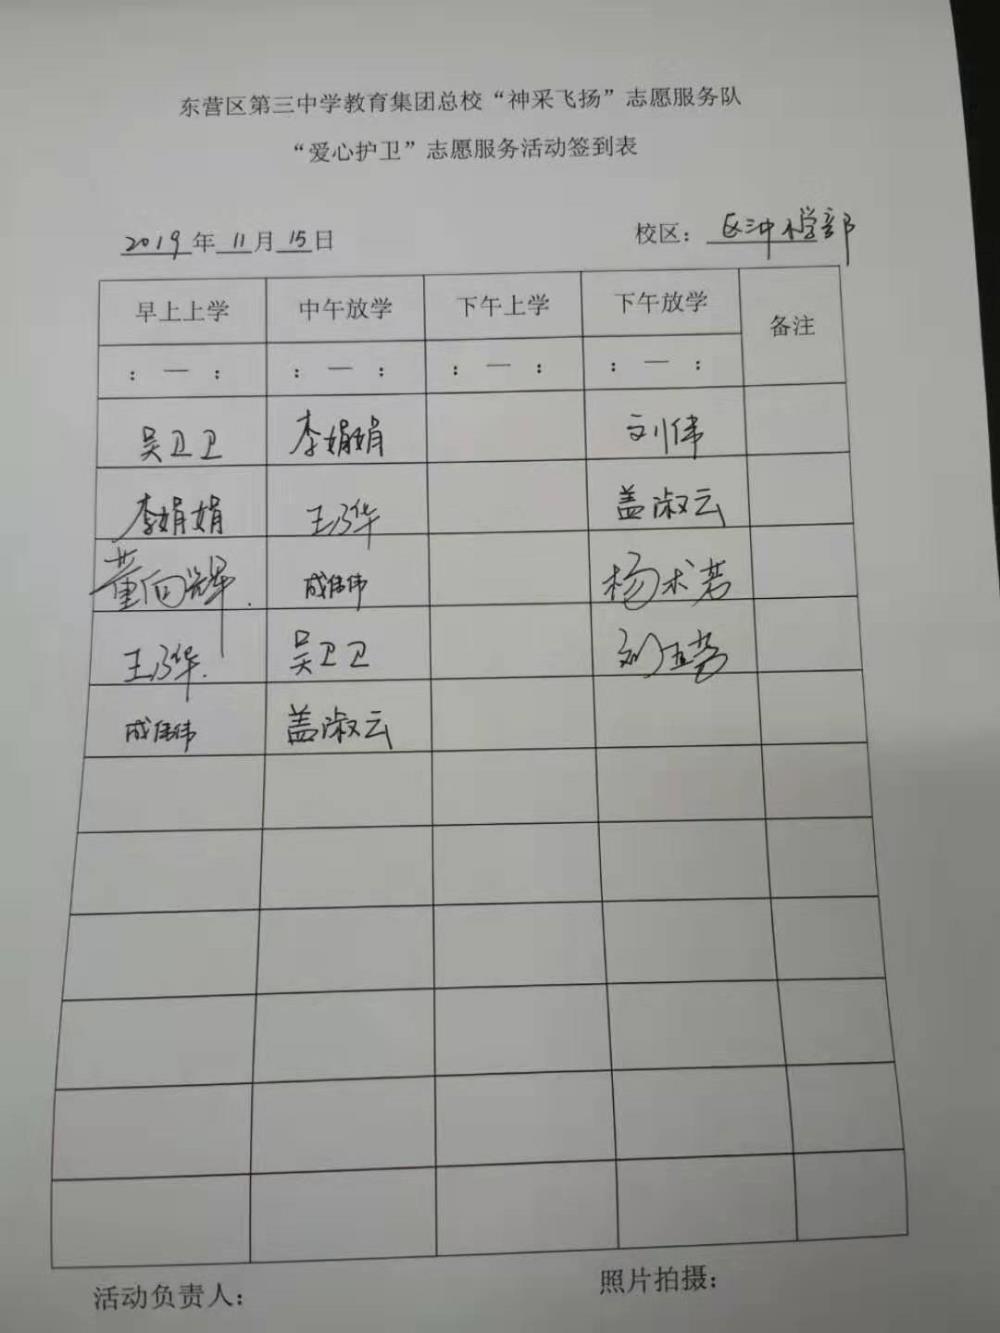 东营区第三中学教育集团总校“神采飞扬”志愿服务队
“爱心护卫”志愿服务活动签到表
2019年11月15日 校区：区三中小学部
早上上学 中午放学 下午上学 下午放学 备注
：—： ：—： ：—： ：—：
吴卫卫 李娟娟 刘伟
李娟娟 王乃华 盖淑云
董向辉 成伟伟 杨术芳
王乃华 吴卫卫
成伟伟 盖淑云
活动负责人： 照片拍摄：